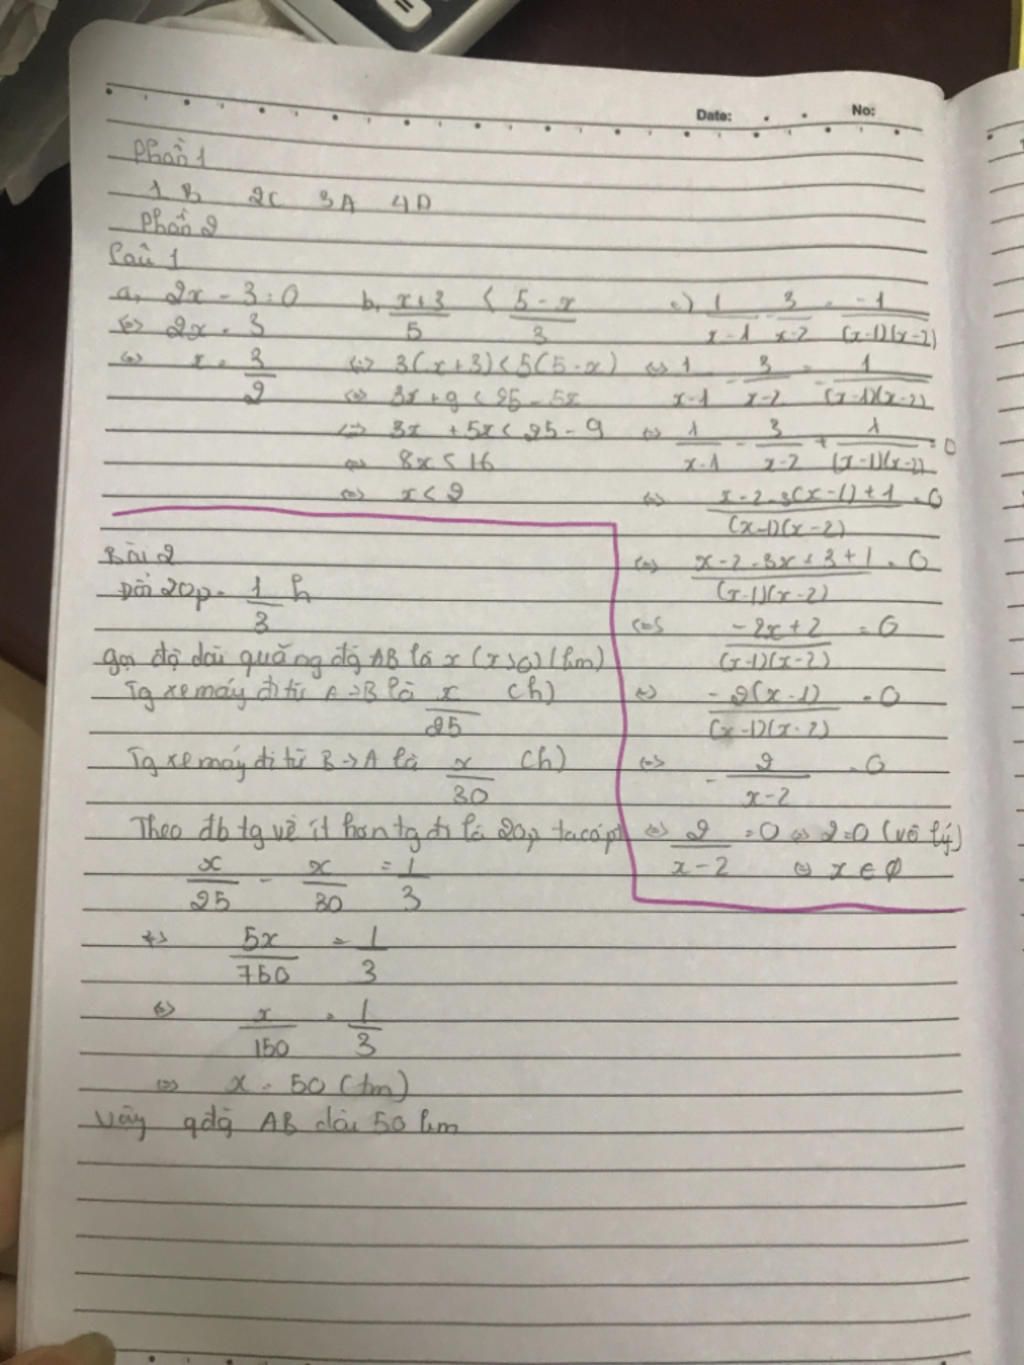 Date: No:
Phần 1
1 B 2C 3A 4D
Phần 2
Câu 1
a, 2x - 3 = 0
<=> 2x = 3
<=> x = 3/2
b, (x+3)/5 < (5-x)/3
<=> 3(x+3) < 5(5-x)
<=> 3x + 9 < 25 - 5x
<=> 3x + 5x < 25 - 9
<=> 8x < 16
<=> x < 2
c) 1/(x-1) - 3/(x-2) = -1/((x-1)(x-2))
<=> 1/(x-1) - 3/(x-2) = -1/((x-1)(x-2))
<=> 1/(x-1) - 3/(x-2) + 1/((x-1)(x-2)) = 0
<=> (x-2-3(x-1)+1)/((x-1)(x-2)) = 0
<=> (x-2-3x+3+1)/((x-1)(x-2)) = 0
<=> (-2x+2)/((x-1)(x-2)) = 0
<=> (-2(x-1))/((x-1)(x-2)) = 0
<=> -2/(x-2) = 0
<=> 2/(x-2) = 0 <=> 2=0 (vô lý)
<=> x ∈ ∅
Bài 2
Đổi 20p = 1/3 h
gọi độ dài quãng đg AB là x (x>0) (km)
Tg xe máy đi từ A->B là x/25 (h)
Tg xe máy đi từ B->A là x/30 (h)
Theo đb tg về ít hơn tg đi là 20p ta có pt
x/25 - x/30 = 1/3
<=> 5x/750 = 1/3
<=> x/150 = 1/3
<=> x = 50 (tm)
Vậy qđg AB dài 50 km